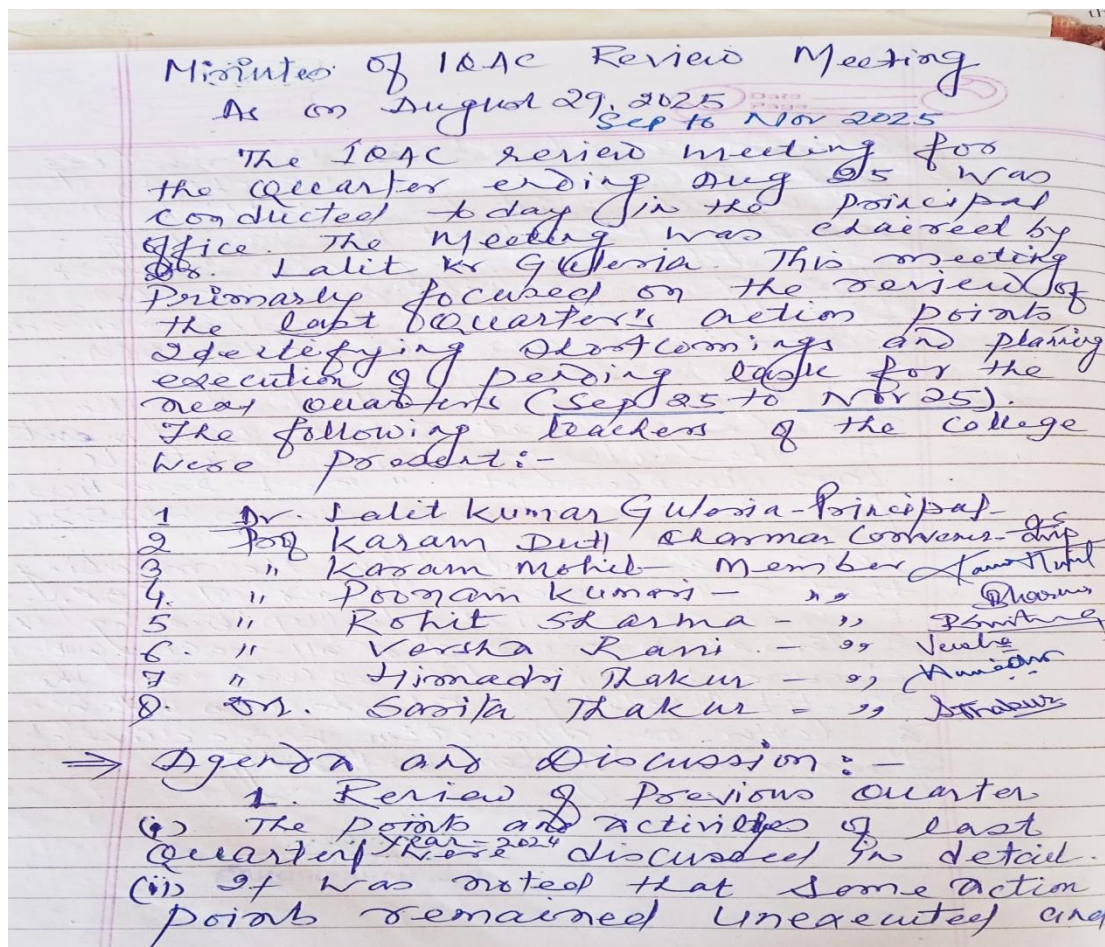 Minutes of IQAC Review Meeting
As on August 29, 2025
Sep to Nov 2025
The IQAC review meeting for
the Quarter ending Aug 25 was
conducted today in the principal
office. The Meeting was chaired by
Dr. Lalit Kr Guleria. This meeting
Primarly focused on the review of
the last Quarter's action points
Identifying Shortcomings and planing
execution of pending task for the
next quarters (Sep 25 to Nov 25).
The following teachers of the college
were present:-
1 Dr. Lalit Kumar Guleria - Principal
2 Prof Karam Dutt Sharma Convener -
3 " Karam Mohit - Member
4. " Poonam Kumari - "
5 " Rohit Sharma - "
6. " Versha Rani - " Versha
7 " Himadri Thakur - "
8. Dr. Sarita Thakur - " SThakur
⇒ Agenda and Discussion:-
1. Review of Previous Quarter
(i) The points and activities of last
Quarter year-2024 were discussed in detail.
(ii) It was noted that some action
points remained unexecuted and